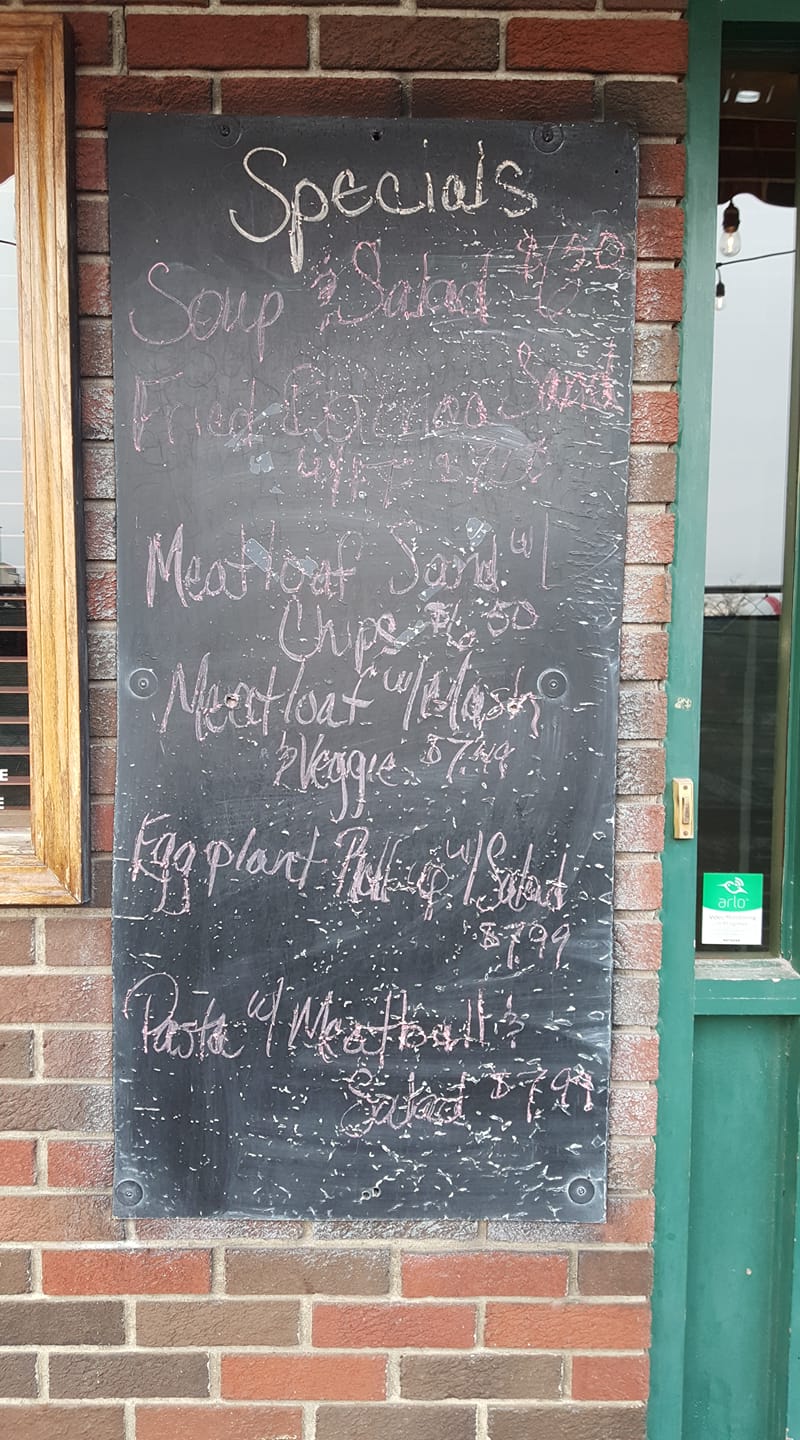 Specials
Soup & Salad $6.50
Fried Bologna Sand
w/FF
Meatloaf Sand w/
Chips $6.50
Meatloaf w/Mash
& Veggie $7.49
Eggplant Roll up w/Salad
$7.99
Pasta w/ Meatball &
Salad $7.99
arlo
E
E